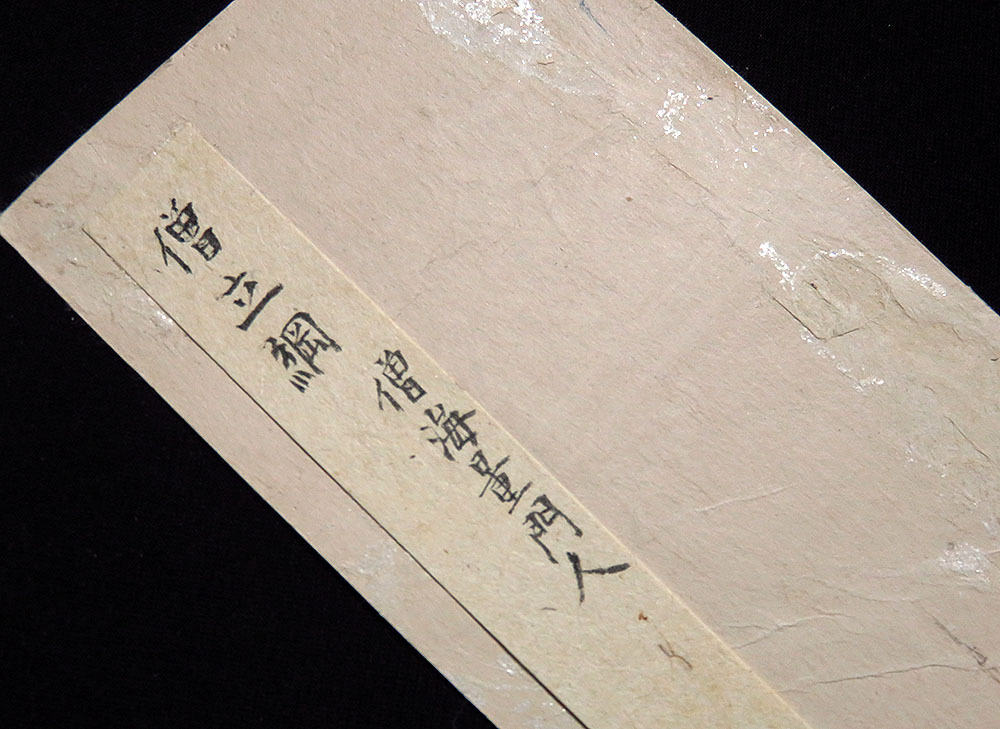 僧立綱 僧海量門人